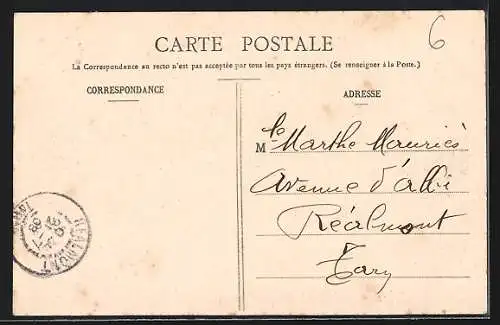 CARTE POSTALE
6
La Correspondance au recto n'est pas acceptée par tous les pays étrangers. (Se renseigner à la Poste.)
CORRESPONDANCE
ADRESSE
Mlle Marthe Mauriès
Avenue d'albi
Réalmont
Tarn
REALMONT
TARN